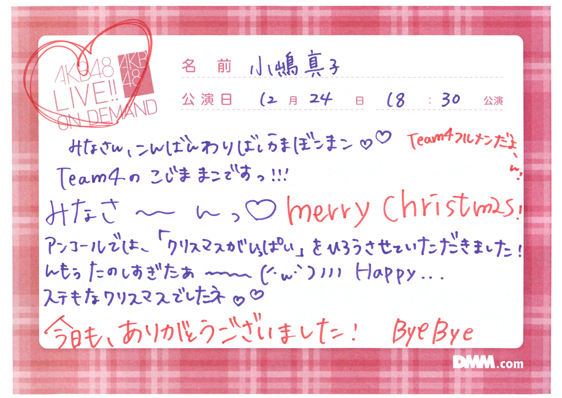 AKB48
LIVE!!
ON DEMAND
AKB
48
名前 小嶋真子
公演日 12月24日 18:30 公演
みなさん、こんばんわりばしかまぼこまこ♡♡
Team4フルメンだよ、
ん!
Team4の こじままこですっ!!!
みなさ〜んっ♡ merry Christmas!
アンコールでは、「クリスマスがいっぱい」をひろうさせていただきました!
んもうったのしすぎたぁ〜〜〜(´·ω·`)))) Happy...
ステキなクリスマスでしたネ♡♡
今日も、ありがとうございました! Bye Bye
DMM.com